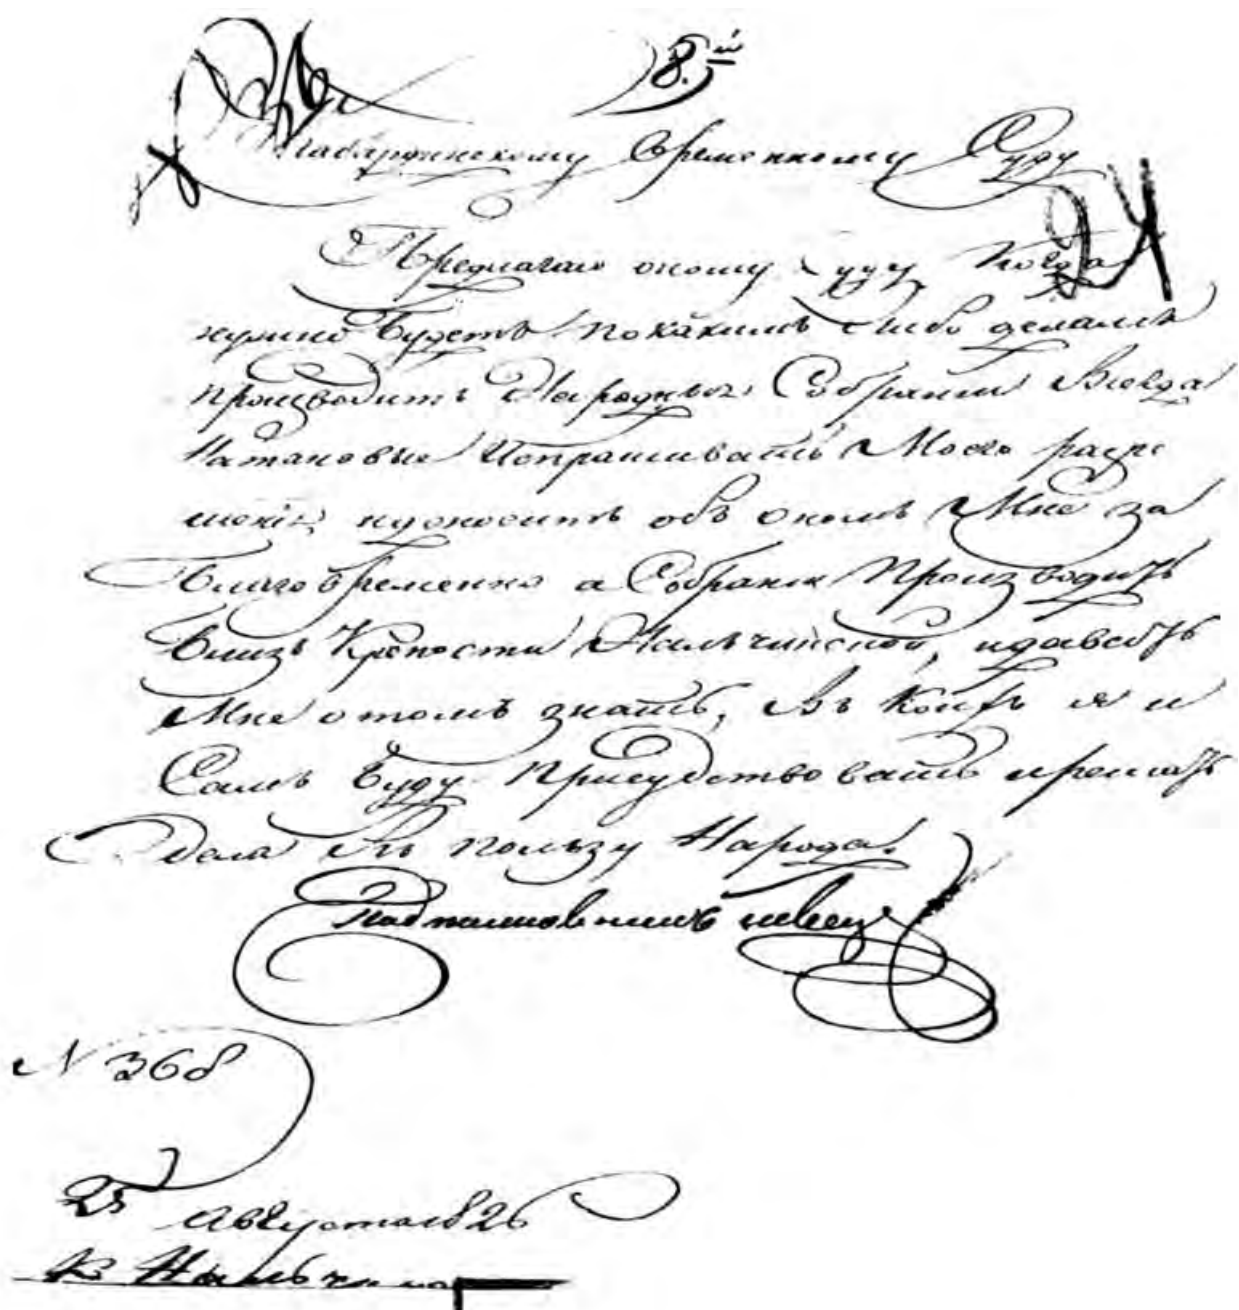 8.й
Кабардинскому Временному Суду
24
Предлагаю оному Суду Когда
нужно будетъ по какимъ либо деламъ
производить Народныя Собрания Всегда
На таковые Испрашивать Моего разре
шения, и доносить объ ономъ Мне за
благовременно а Собрания Производить
близь Крепости Нальчинской, и давать
Мне о томъ знать, Въ коихъ я и
Самъ буду Присудствовать и решать
дела Въ пользу Народа.
Подполковникъ
N 368
25
Августа 1826
К. Нальчикъ